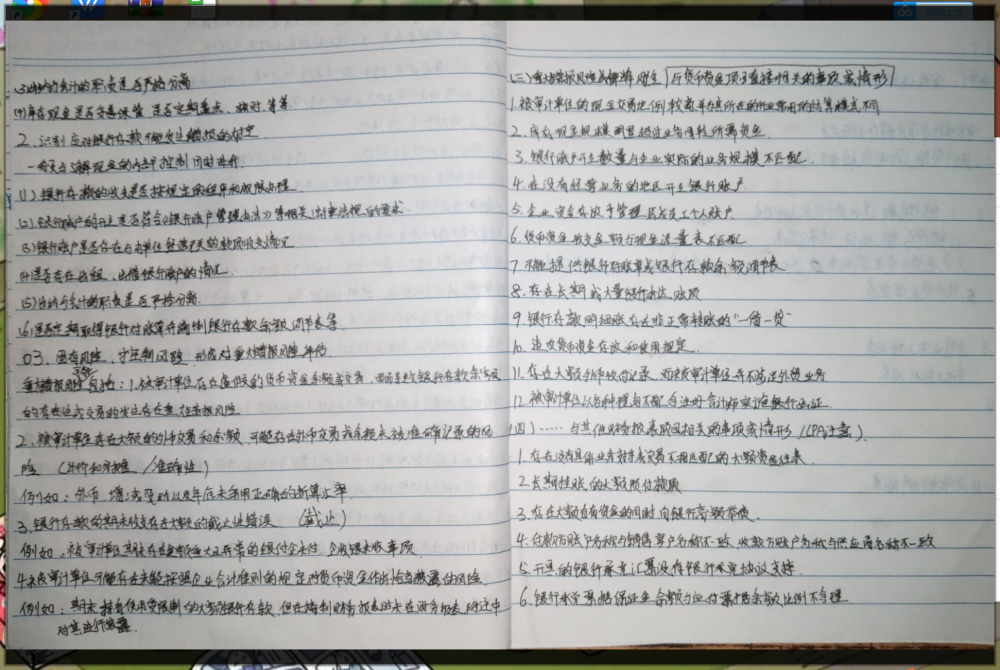 (3)出纳与会计的职责是否严格分离
(4)库存现金是否妥善保管,是否定期盘点、核对,等等
2. 识别应对银行存款可能发生错报的情况
一般是与了解现金的内部控制同时进行
(1) 银行存款的收支是否按规定的程序和权限办理
(2) 银行账户的开立是否符合《银行账户管理办法》等相关法律法规的要求.
(3) 银行账户是否存在与本单位经营无关的款项收支情况
(4)是否存在出租、出借银行账户的情况.
(5) 出纳与会计的职责是否严格分离.
(6) 是否定期取得银行对账单并编制银行存款余额调节表等.
03. 固有风险、控制风险 形成对重大错报风险评估
重大错报风险包括:1.被审计单位存在虚假的货币资金余额或交易,因而导致银行存款余额
的存在或交易的发生存在重大错报风险
2. 被审计单位存在大额的外币交易和余额,可能存在外币交易或余额未被准确记录的风
险 (计价和分摊 / 准确性)
例如:外币 增减变动以及年底未采用正确的折算汇率
3.银行存款的期末收支存在大额的截止性错误 (截止)
例如:被审计单位期末存在金额重大且异常的银付企未付,企收银未收事项
4.被审计单位可能存在未能按照企业会计准则的规定对货币资金作出恰当披露的风险
例如:期末持有使用受限制的大额银行存款,但在编制财务报表时未在财务报表附注中
对其进行披露.
(三) 与货币资金项目直接相关的事项或情形
1. 被审计单位的现金交易比例较高,并与其所在的行业常用的结算模式不同
2. 库存现金规模明显超过业务周转所需资金
3. 银行账户开立数量与企业实际的业务规模不匹配
4. 在没有经营业务的地区开立银行账户
5. 企业资金存放于管理层或员工个人账户
6. 货币资金收支金额与现金流量表不匹配
7. 不能提供银行对账单或银行存款余额调节表
8. 存在长期或大量银行未达账项
9. 银行存款明细账存在非正常转账的"一借一贷"
10. 违反货币资金存放和使用规定.
11. 存在大额外币收付记录,而被审计单位并不涉足外贸业务
12. 被审计单位以各种理由不配合注册会计师实施银行函证.
(四) …… 与其他财务报表项目相关的事项或情形 (CPA注意).
1. 存在没有具体业务支持或交易不相匹配的大额资金往来.
2. 长期挂账的大额预付款项
3. 存在大额自有资金的同时,向银行高额举债.
4. 付款方账户名称与销售客户名称不一致、收款方账户名称与供应商名称不一致
5. 开具的银行承兑汇票没有银行承兑协议支持.
6. 银行承兑票据保证金余额与应付票据余额比例不合理.